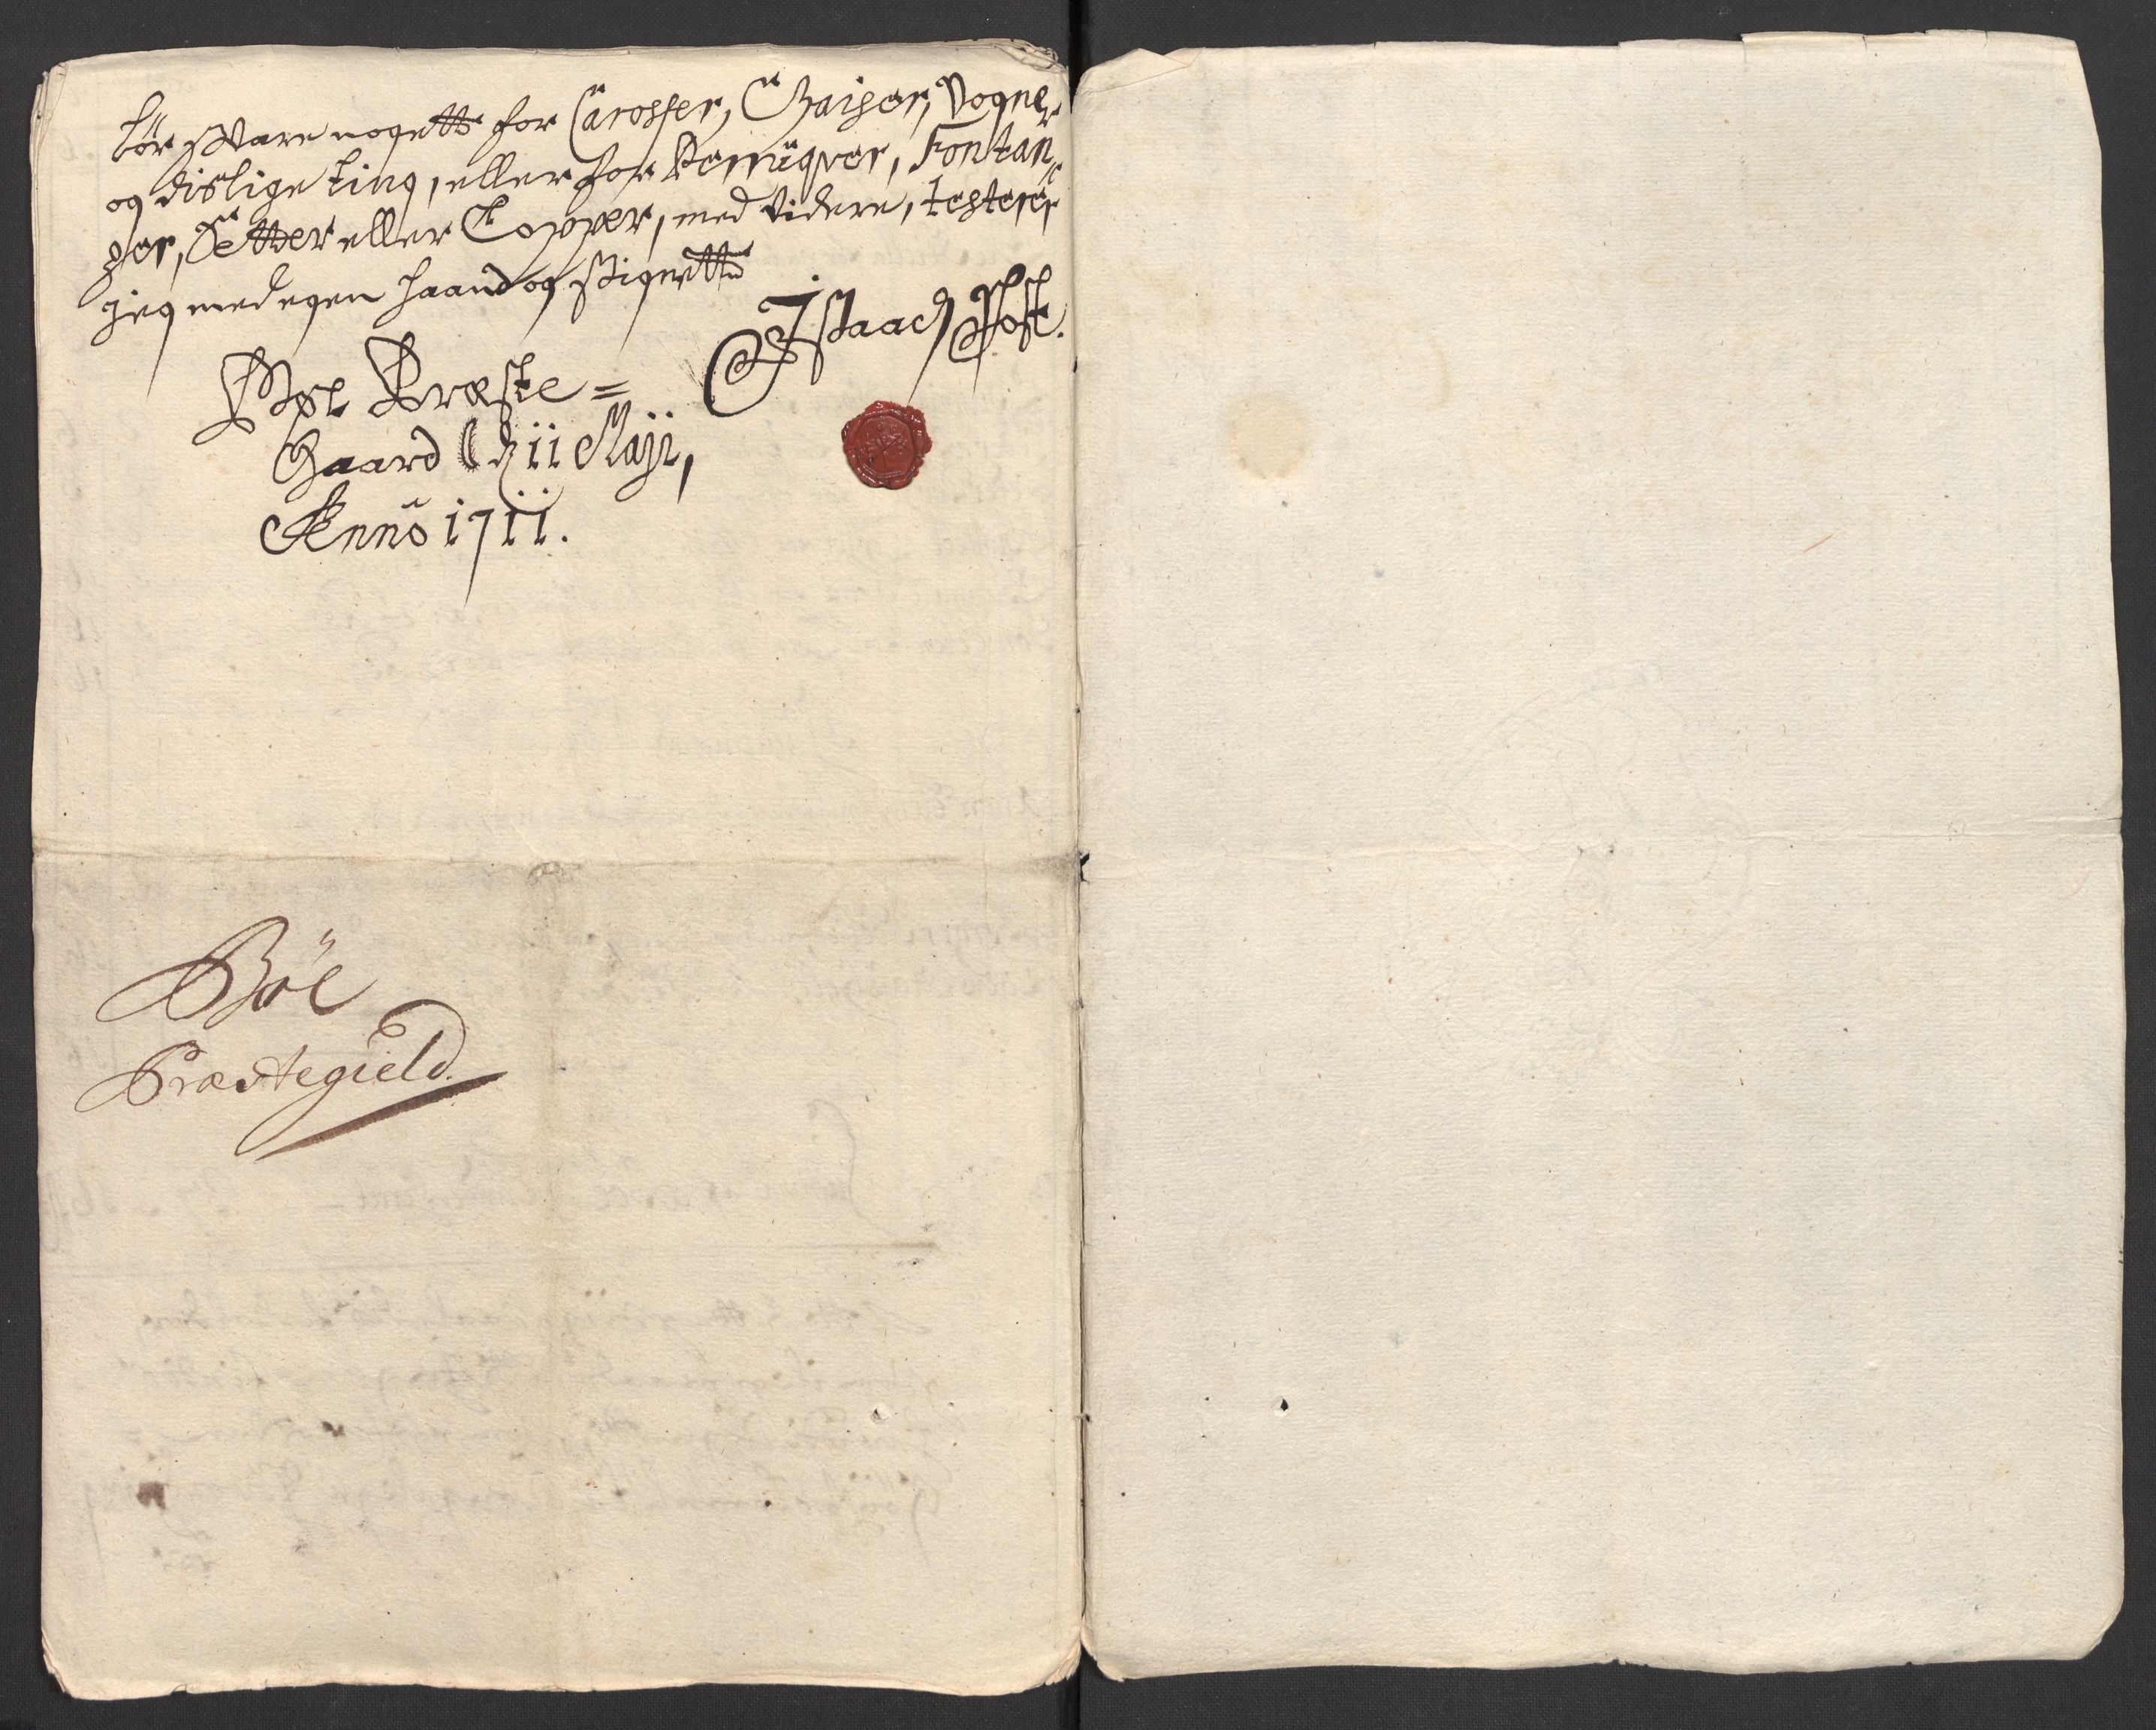 bör svare nogett for Carosser, Chaiser, Vogner
og dislige ting, eller for Perrüqver, Fontan=
ger, Setter eller Topper, med videre, testerer
jeg med egen haand og Signette
Isaach Post.
Bøe Præste=
Gaard d. 11 Maji,
Anno 1711.
Bøe
Præstegield.